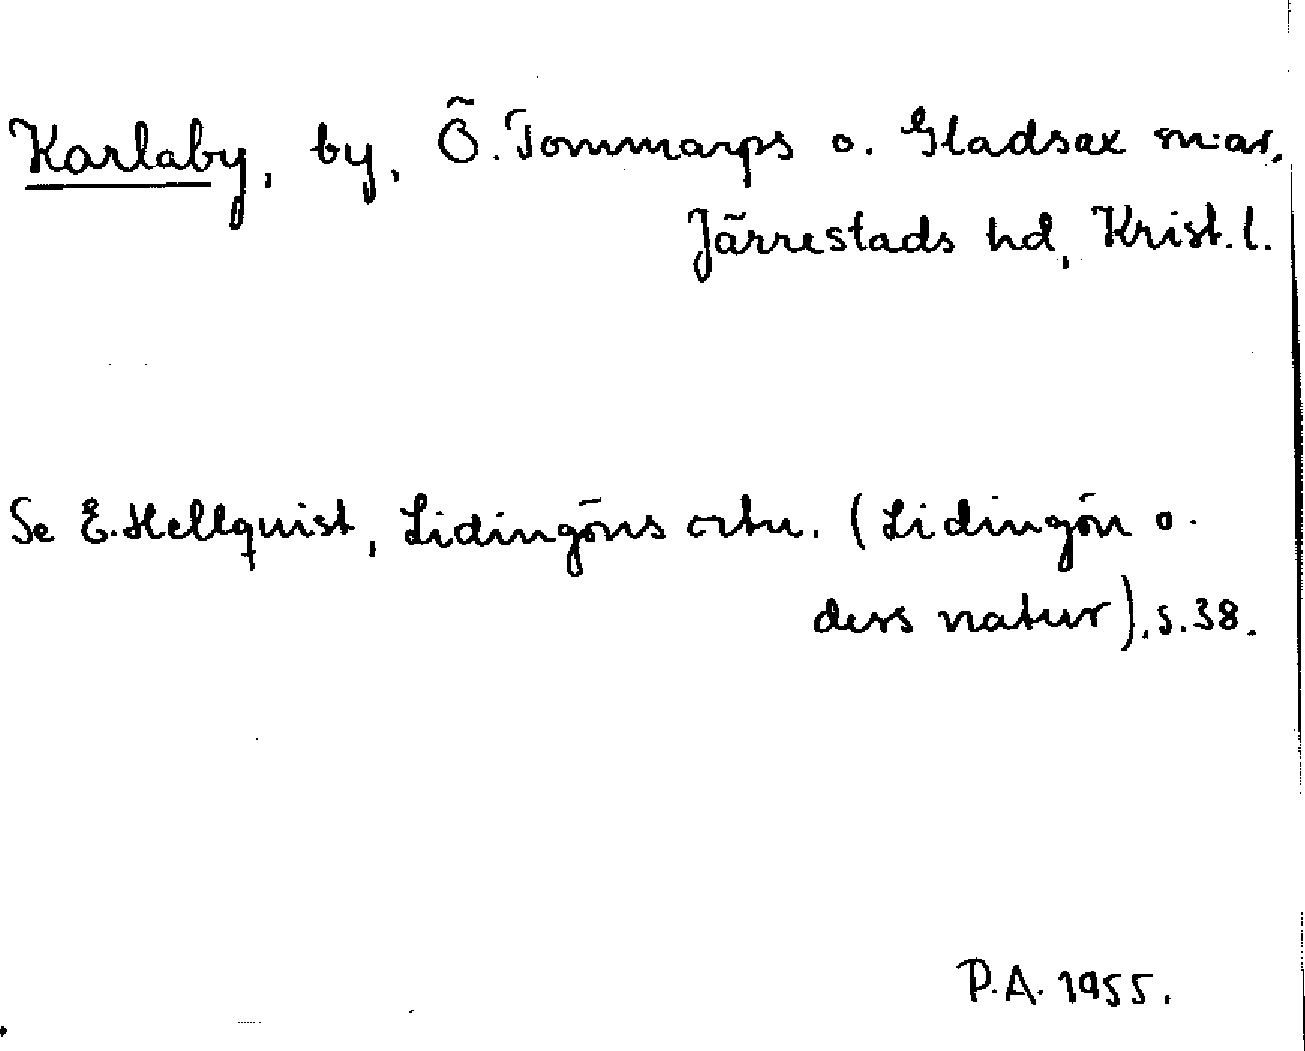 Karlaby, by, Ö. Tommarps o. Gladsax sn:ar,
Järrestads hd, Krist. l.
Se E. Hellquist, Lidingöns ortn. (Lidingön o.
dess natur), s. 38.
P.A. 1955.